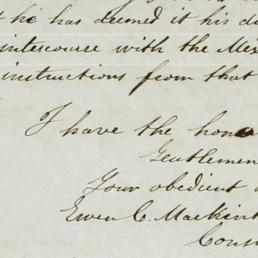 he has deemed it his
intercourse with the Mex
instructions from that
I have the hono
Gentlemen
Your obedient
Ewen C. Mackint
Cons